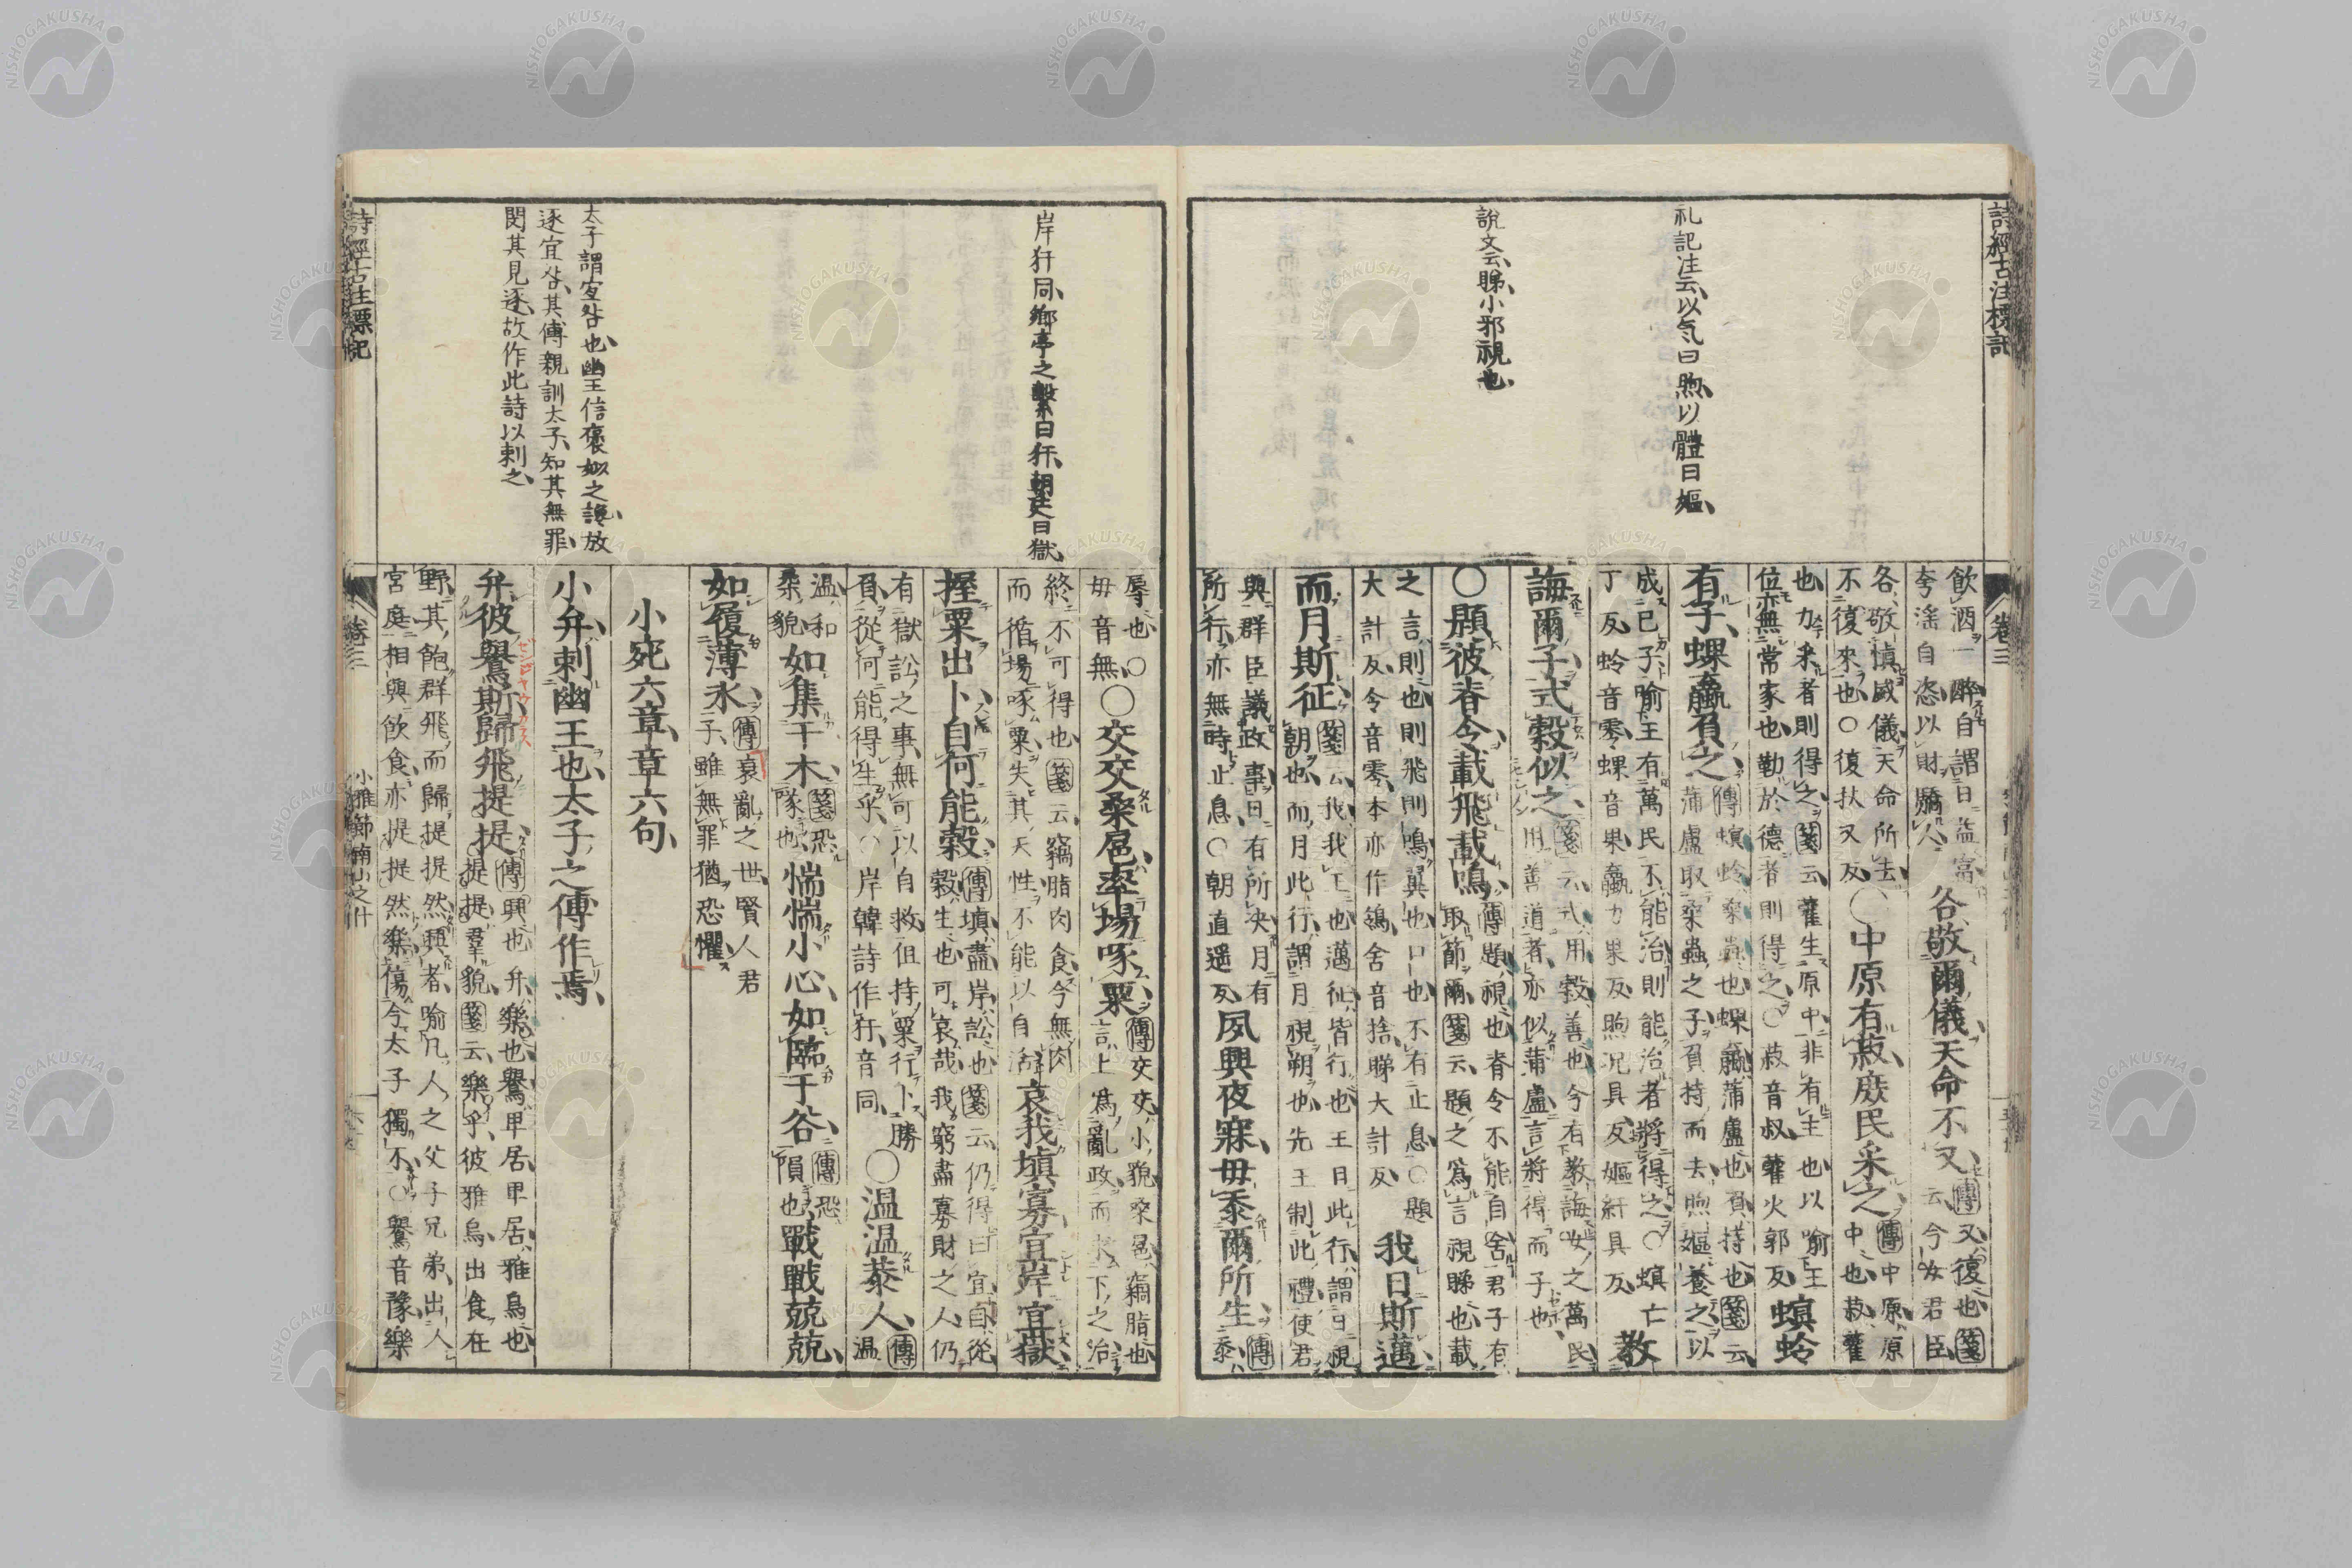 詩經古注標記
卷三
礼記注云以気曰煦以體曰嫗
說文云睇小邪視也
飲酒一醉自謂日益富
夸淫自恣以財驕人
各敬爾儀天命不又
傳又復也箋
云今女君臣
各敬愼威儀天命所去
不復來也〇復扶又反
〇中原有菽庶民采之
傳中原原
中也菽藿
也力采者則得之箋云藿生原中非有主也以喻王
位亦無常家也勤於德者則得之〇菽音叔藿火郭反
螟蛉
有子蜾蠃負之
傳螟蛉桑蟲也蜾蠃蒲盧也負持也箋云
蒲盧取桑蟲之子負持而去煦嫗養之以
成已子喻王有萬民不能治則能治者將得之〇螟亡
丁反蛉音零蜾音果蠃力果反煦況具反嫗紆具反
教
誨爾子式穀似之
箋云式用穀善也今有教誨女之萬民
用善道者亦似蒲盧言將得而子也
〇題彼脊令載飛載鳴
傳題視也脊令不能自舍君子有
取節爾箋云題之爲言視睇也載
之言則也則飛則鳴翼也口也不有止息〇題
大計反令音零本亦作鴒舍音捨睇大計反
我日斯邁
而月斯征
箋云我我王也邁征皆行也王日此行謂日視
朝也而月此行謂月視朔也先王制此禮使君
與群臣議政事日有所决月有
所行亦無時止息〇朝直遥反
夙興夜寐毋忝爾所生
傳
忝
辱也〇
毋音無
〇交交桑扈率場啄粟
傳交交小貌桑扈竊脂也
言上爲亂政而求下之治
終不可得也箋云竊脂肉食今無肉
而循場啄粟失其天性不能以自活
哀我塡寡宜岸宜獄
握粟出卜自何能穀
傳塡盡岸訟也箋云仍得曰宜自從
穀生也可哀哉我窮盡寡財之人仍
有獄訟之事無可以自救但持粟行卜
負從何能得生乎〇岸韓詩作犴音同
勝
〇温温恭人
傳
温
温和
柔貌
如集于木
箋恐
隊也
惴惴小心如臨于谷
傳恐
隕也
戰戰兢兢
如履薄氷
傳衰亂之世賢人君
子雖無罪猶恐懼
小宛六章章六句
小弁刺幽王也太子之傅作焉
弁彼鸒斯歸飛提提
傳興也弁樂也鸒卑居卑居雅烏也
提提羣貌箋云樂乎彼雅烏出食在
野其飽群飛而歸提提然興者喻凡人之父子兄弟出人
宮庭相與飲食亦提提然樂傷今太子獨不〇鸒音豫樂
岸犴同鄉亭之繫曰犴朝廷曰獄
太子謂宜咎也幽王信褒姒之讒放
逐宜咎其傅親訓太子知其無罪
閔其見逐故作此詩以刺之
詩經古注標記
卷三
小雅節南山之什